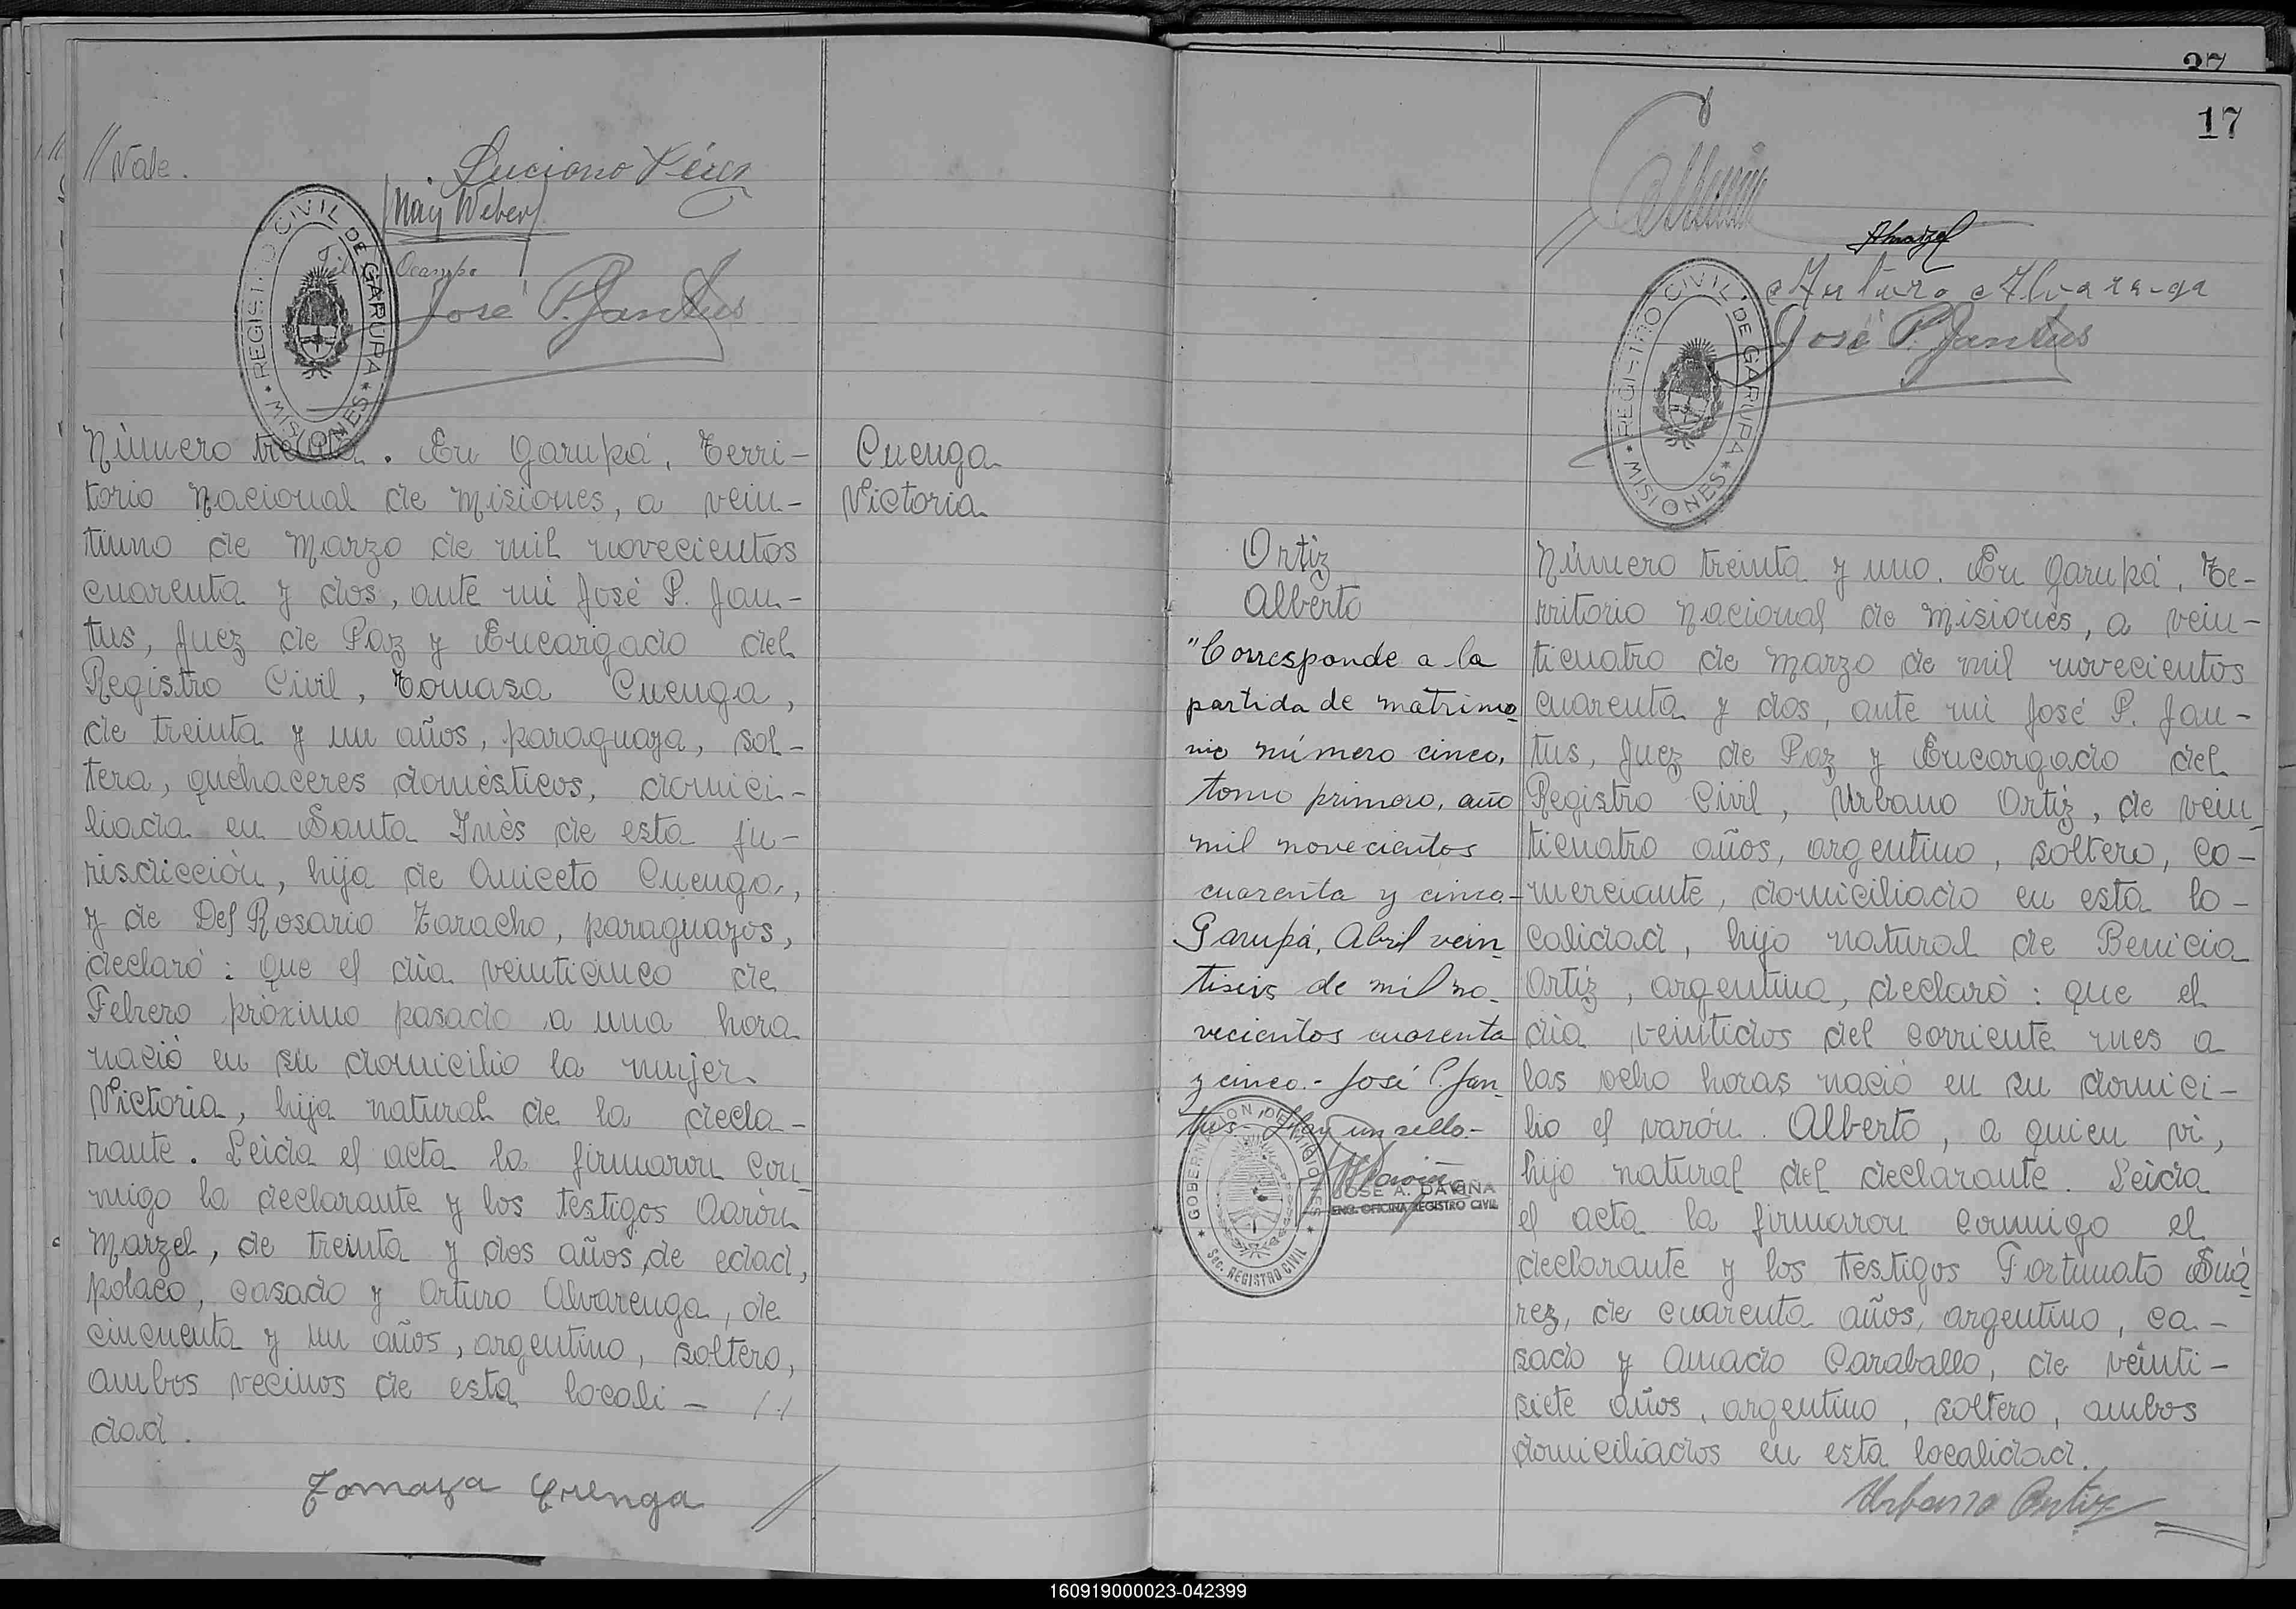 // Vale.
Luciano Pérez
May Weber
Ocampo
José P. Jantus
REGISTRO CIVIL DE GARUPA
* MISIONES *
Número treinta. En Garupá, Terri-
torio Nacional de Misiones, a vein-
tiuno de Marzo de mil novecientos
cuarenta y dos, ante mi José P. Jan-
tus, Juez de Paz y Encargado del
Registro Civil, Tomasa Cuenga,
de treinta y un años, paraguaya, sol-
tera, quehaceres domésticos, domici-
liada en Santa Inés de esta ju-
risdicción, hija de Aniceto Cuenga,
y de Del Rosario Taracho, paraguayos,
declaró: que el día veinticinco de
Febrero próximo pasado a una hora
nació en su domicilio la mujer
Victoria, hija natural de la decla-
rante. Leída el acta la firmaron con
migo la declarante y los testigos Aarón
Marzel, de treinta y dos años, de edad,
polaco, casado y Arturo Alvarenga, de
cincuenta y un años, argentino, soltero,
ambos vecinos de esta locali-
dad.
Tomaza Cuenga //
Cuenga
Victoria
37
17
//
AMarzel
Arturo Alvarenga
José P. Jantus
REGISTRO CIVIL DE GARUPA
* MISIONES *
Ortiz
Alberto
"Corresponde a la
partida de matrimo-
nio número cinco,
tomo primero, año
mil novecientos
cuarenta y cinco-
Garupá, Abril vein-
tiseis de mil no-
vecientos cuarenta
y cinco.- José P. Jan-
tus- Hay un sello.-
GOBERNACION DE MISIONES
* Sec. REGISTRO CIVIL *
JOSE A. DAVIÑA
ENC. OFICINA REGISTRO CIVIL
Número treinta y uno. En Garupá, Te-
rritorio Nacional de Misiones, a vein-
ticuatro de Marzo de mil novecientos
cuarenta y dos, ante mi José P. Jan-
tus, Juez de Paz y Encargado del
Registro Civil, Urbano Ortiz, de vein-
ticuatro años, argentino, soltero, co-
merciante, domiciliado en esta lo-
calidad, hijo natural de Benicia
Ortiz, argentina, declaró: que el
día veintidos del corriente mes a
las ocho horas nació en su domici-
lio el varón Alberto, a quien vi,
hijo natural del declarante. Leída
el acta la firmaron conmigo el
declarante y los testigos Fortunato Suá-
rez, de cuarenta años, argentino, ca-
sado y Amado Caraballo, de veinti-
siete años, argentino, soltero, ambos
domiciliados en esta localidad.
Urbano Ortiz
160919000023-042399